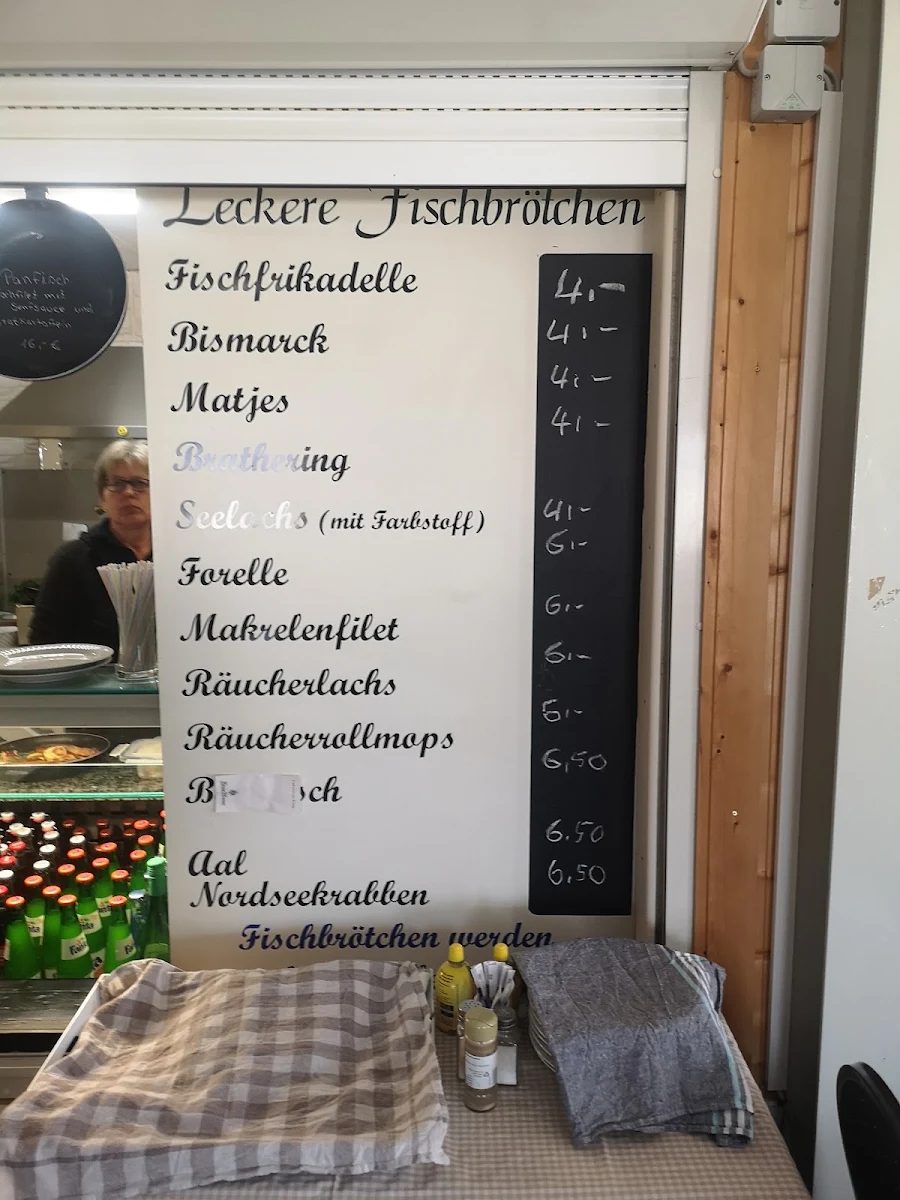 Leckere Fischbrötchen
Fischfrikadelle 4,-
Bismarck 4,-
Matjes 4,-
Brathering 4,-
Seelachs (mit Farbstoff) 4,-
Forelle 6,-
Makrelenfilet 6,-
Räucherlachs 6,-
Räucherrollmops 5,-
6,50
Aal 6.50
Nordseekrabben 6,50
Fischbrötchen werden
Panfisch
mit
Senfsauce und
16,-€